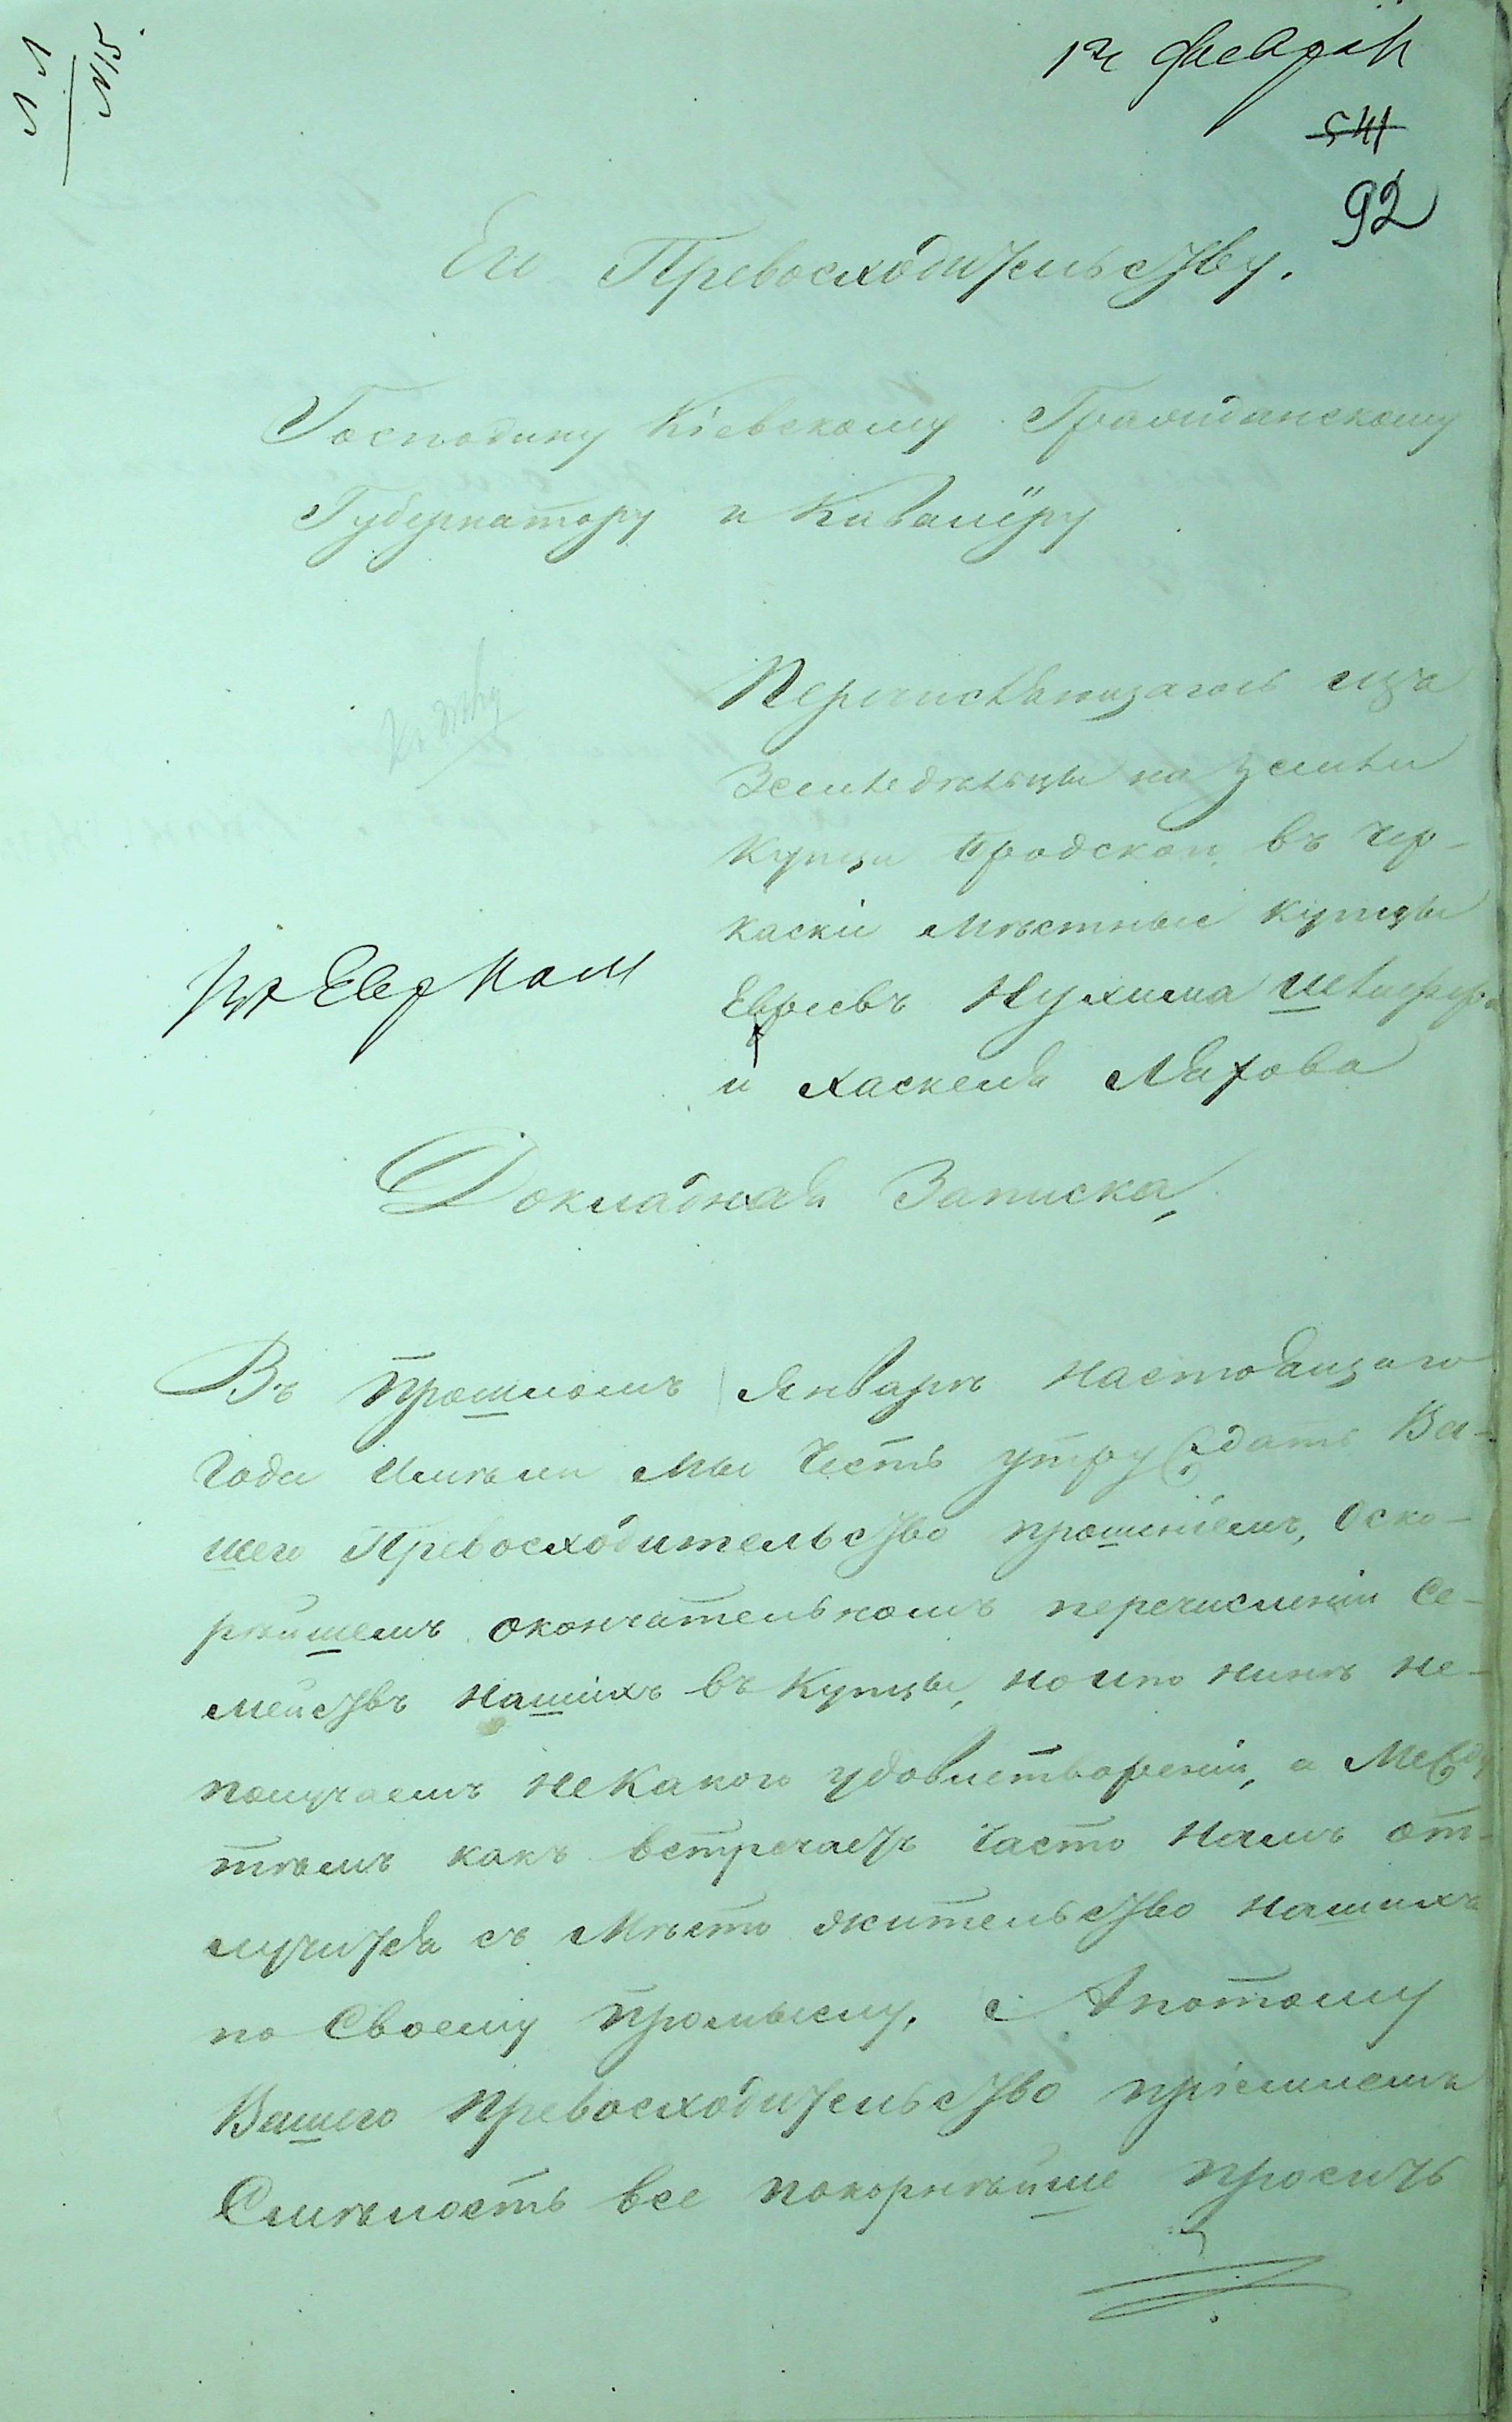 № 15.
12 февраля
541
92
Его Превосходительству.
Господину Кіевскому Гражданскому
Губернатору и Кавалеру
Перечисляющагось изъ
Земледѣльцы на земли
Купци Бродскои, въ Чер-
каскіи мѣстные Купцы
Евреевъ Нухима Шлифера
и Хаскеля Ляхова
Докладная Записка,
Въ прошломъ Январѣ настоящаго
года имѣли мы Честь утруждать Ва-
шего Превосходительство прошеніемъ, оско-
рѣйшемъ окончательномъ перечисленіи Се-
мействъ нашихъ въ Купцы, но ипо нинѣ не-
получаемъ некакого удовлетвореніи, а Между
тѣмъ какъ встречаетъ Часто намъ от-
лучится съ Мѣсто жительство нашихъ
по Своему промыслу. Апотому
Вашего Превосходительство пріемлемъ
Смѣлость все покорнѣйше просить